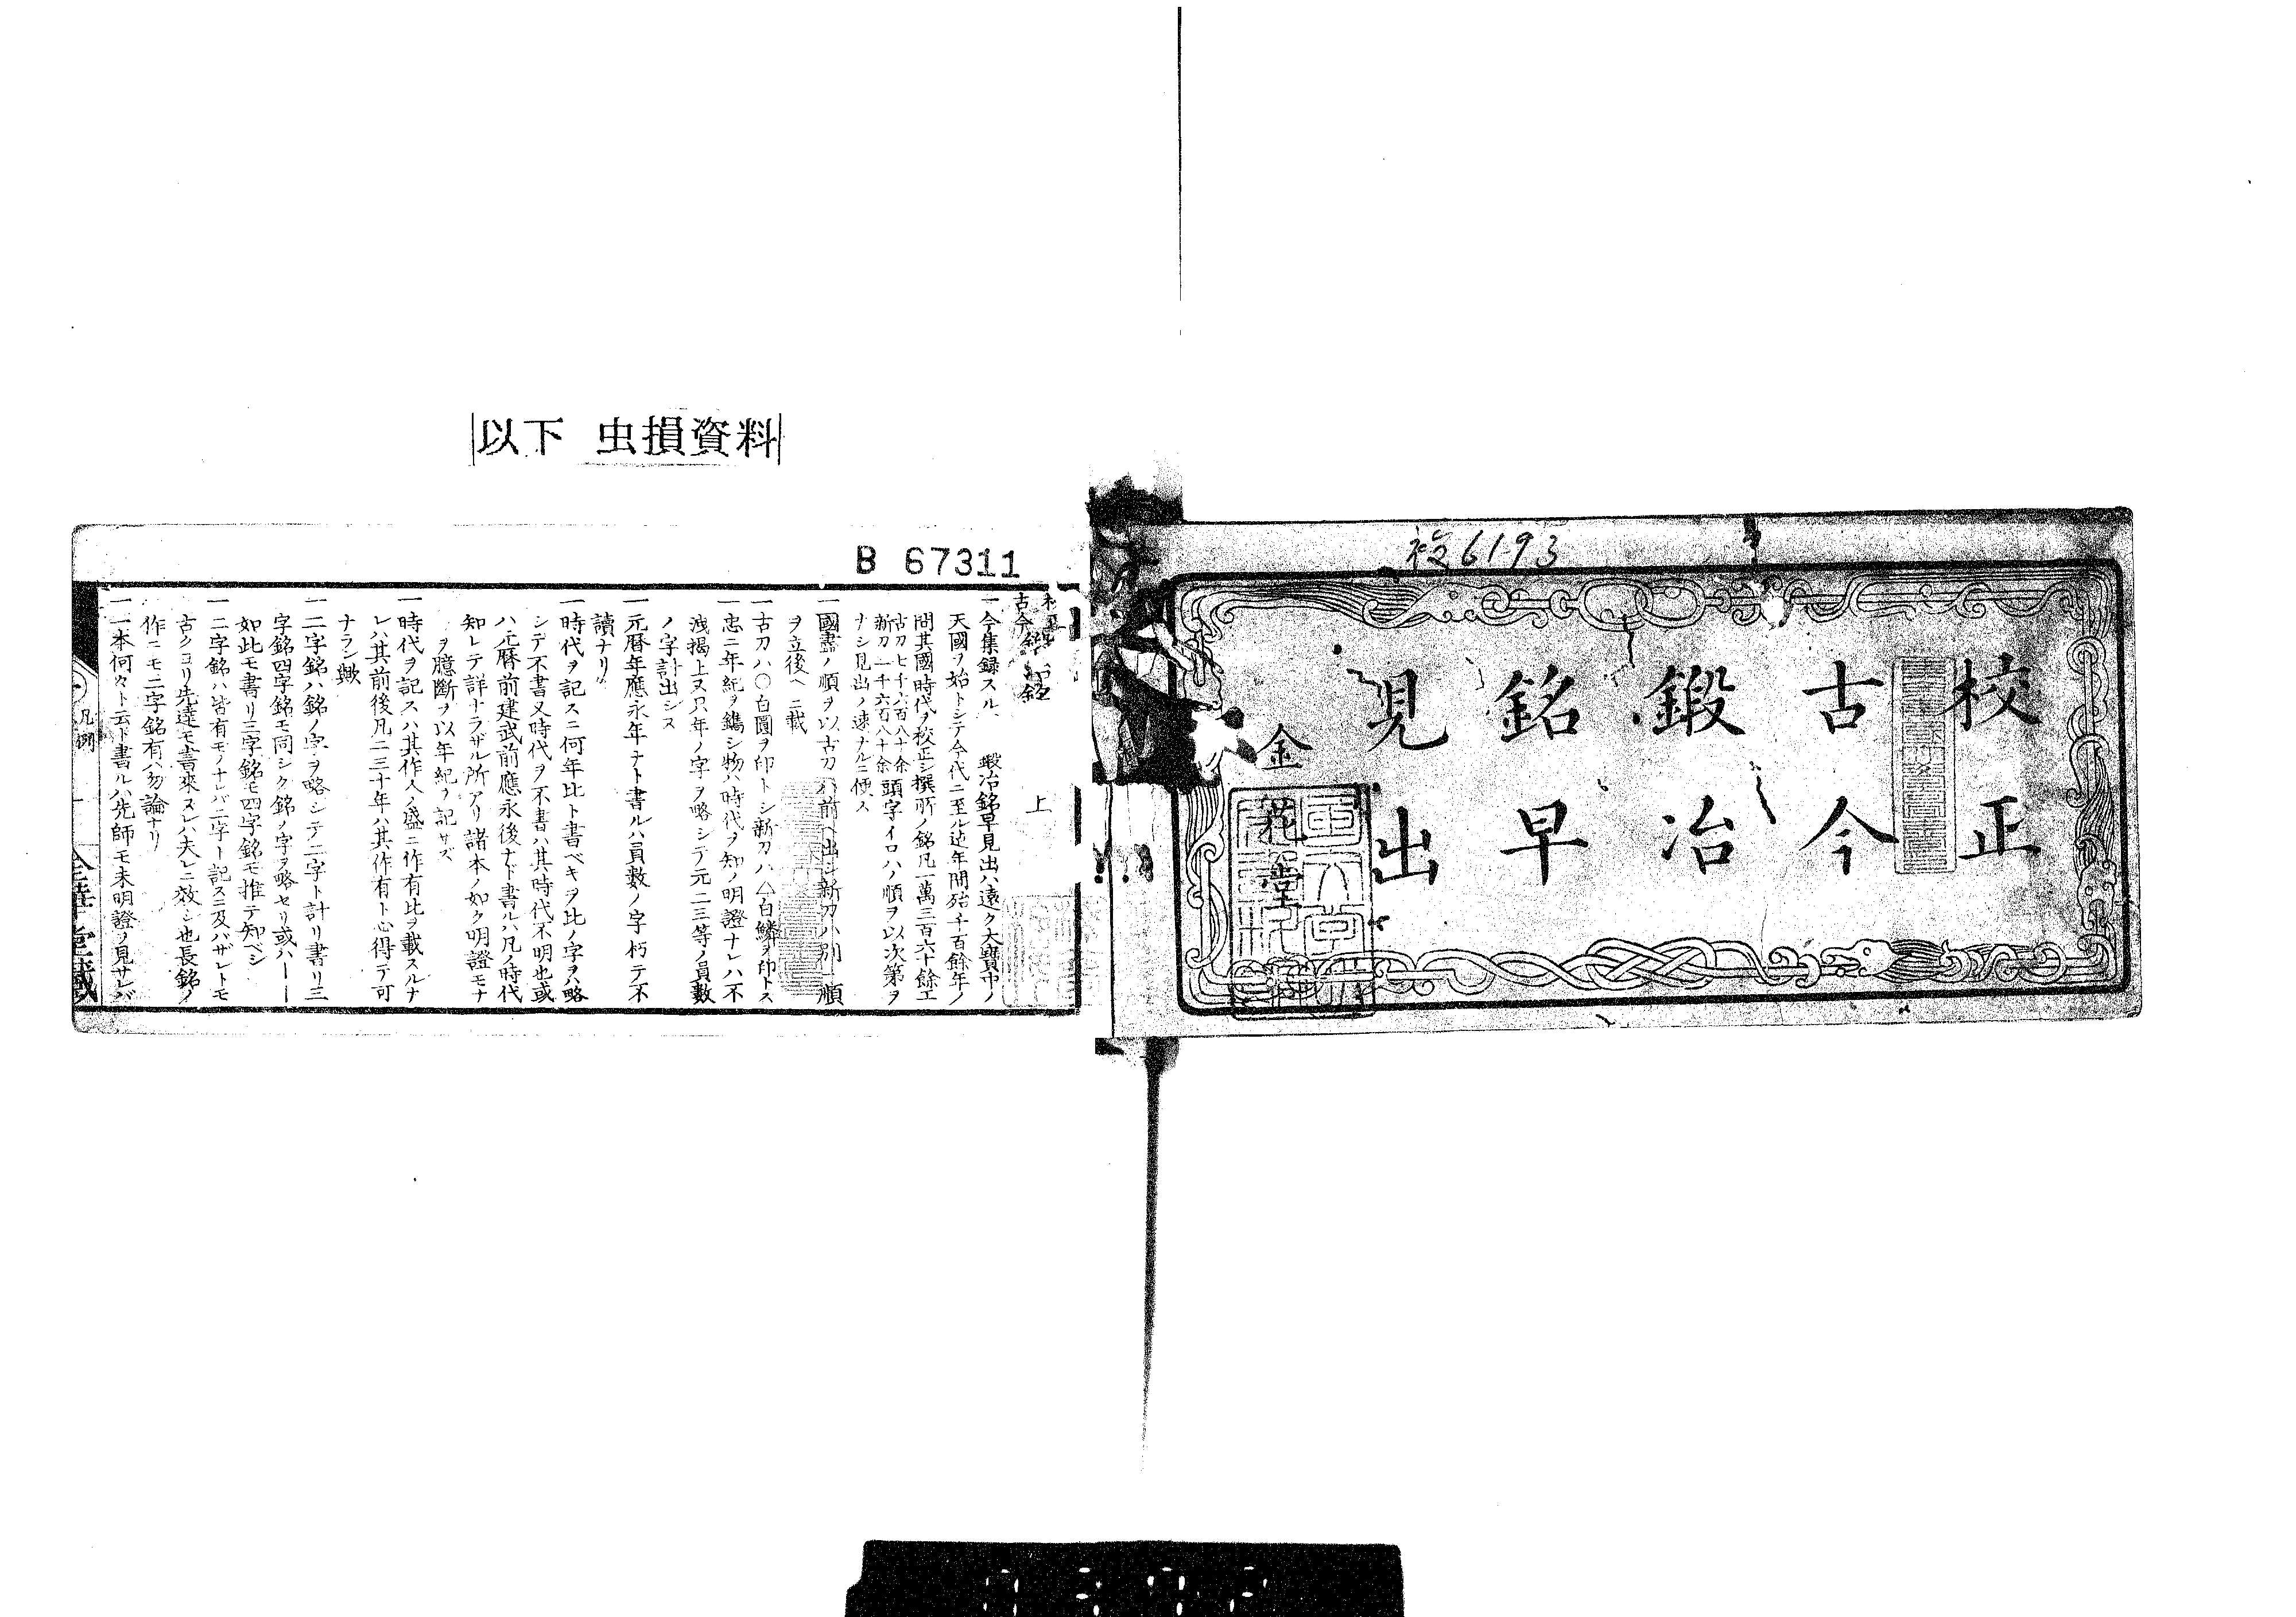 以下 虫損資料
6193
校正
古今
鍛冶
銘早
見出
金花堂
B 67311
古今鍛
上
一今集録スル 鍛冶銘早見出ハ遠ク大寶中ノ
天國ヲ始トシテ今代ニ至ル迠年間殆千百餘年ノ
間其國時代ヲ校正シ撰所ノ銘凡一萬三百六十餘工
古刀七千六百八十余
新刀二千六百八十余
頭字イロハノ順ヲ以次第ヲ
ナシ見出ノ速ナルニ便ス
一國盡ノ順ヲ以古刀ハ前ヘ出シ新刀ハ別ニ順
ヲ立後ヘニ載
一古刀ハ〇白圓ヲ印トシ新刀ハ△白鱗ヲ印トス
一忠二年紀ヲ鐫シ物ハ時代ヲ知ノ明證ナレハ不
洩掲上又只年ノ字ヲ略シテ元二三等ノ員數
ノ字計出シヌ
一元暦年應永年ナト書ルハ員數ノ字朽テ不
讀ナリ
一時代ヲ記スニ何年比ト書ベキヲ比ノ字ヲハ略
シテ不書又時代ヲ不書ハ其時代不明也或
ハ元暦前建武前應永後ナド書ルハ凡ノ時代
知レテ詳ナラザル所アリ諸本ノ如ク明證モナ
ヲ臆斷ヲ以年紀ヲ記サズ
一時代ヲ記スハ其作人ノ盛ニ作有比ヲ載スルナ
レハ其前後凡二三十年ハ其作有ト心得テ可
ナラン歟
一二字銘ハ銘ノ字ヲ略シテ二字ト計リ書リ三
字銘四字銘モ同シク銘ノ字ヲ略セリ或ハ——
如此モ書リ三字銘モ四字銘モ推テ知ベシ
一二字銘ハ皆有モノナレバ二字ト記スニ及バザレトモ
古クヨリ先達モ書來ヌレハ夫レニ效シ也長銘ノ
作ニモ二字銘有ハ勿論ナリ
一一本何々ト云ト書ルハ先師モ未明證ヲ見サレバ
凡例
金華堂藏